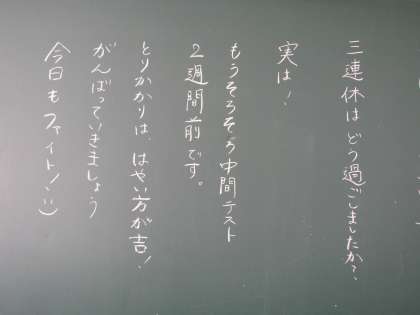 三連休はどう過ごしましたか？
実は！
もうそろそろ中間テスト
２週間前です。
とりかかりは、はやい方が吉！
がんばっていきましょう
今日もファイト！:)